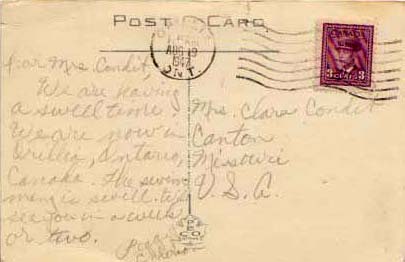 POST CARD
AUG 19
1947
ONT.
CANADA
3 CENTS 3
Dear Mrs Condit,
We are having
a swell time.
We are now in
Orillia, Ontario,
Canada. The swim
ming is swell. We'll
see you in a week
or two.
Mrs. Clara Condit
Canton
Missouri
U.S.A.
PECO